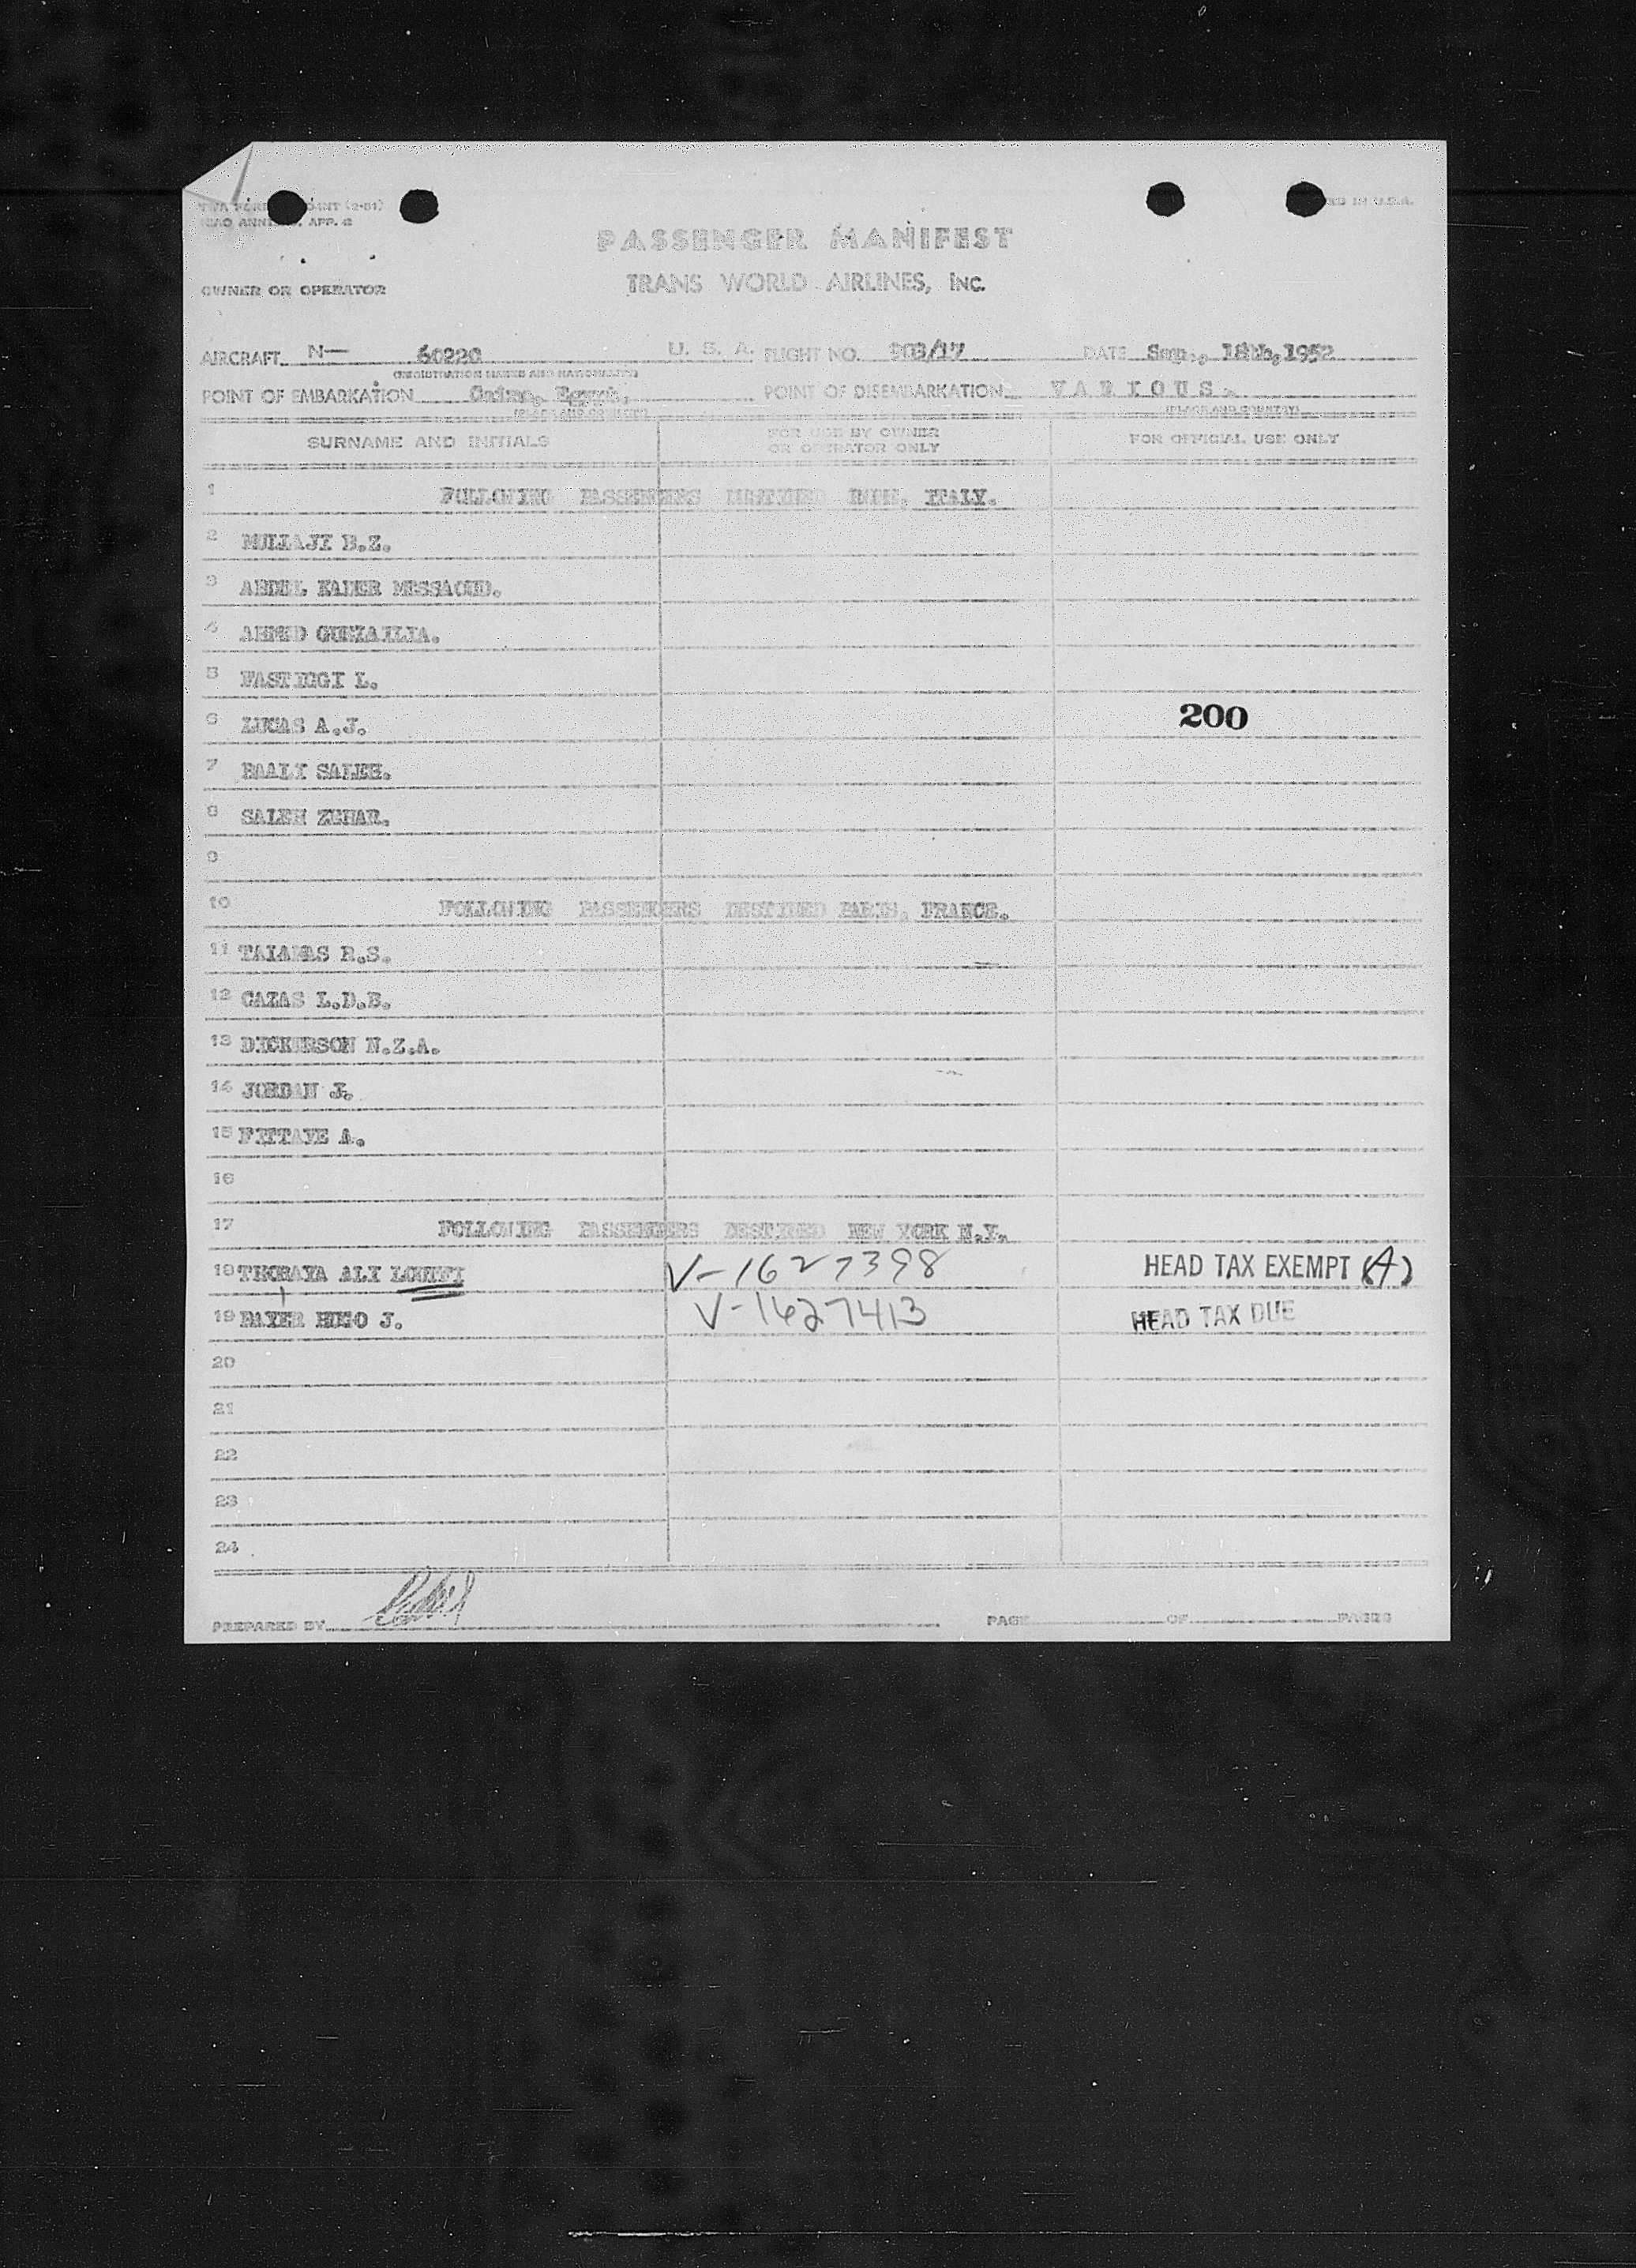 PASSENGER MANIFEST
OWNER OR OPERATOR TRANS WORLD AIRLINES, INC.
AIRCRAFT N— 60220 U. S. A. FLIGHT NO. DATE Sep., 18th, 1952
(REGISTRATION MARKS AND NATIONALITY)
POINT OF EMBARKATION Cairo, Egypt, POINT OF DISEMBARKATION V A R I O U S
(PLACE AND COUNTRY) (PLACE AND COUNTRY)
SURNAME AND INITIALS FOR USE BY OWNER OR OPERATOR ONLY FOR OFFICIAL USE ONLY
1 FOLLOWING PASSENGERS DESTINED ROME, ITALY.
2 MULLAJI B.Z.
3 ABDEL KADER MESSAOUD.
4 AHMED
5 L.
6 LUCAS A.J. 200
7 BAALI SALEH.
8 SALEH
9
10 FOLLOWING PASSENGERS DESTINED PARIS, FRANCE.
11 R.S.
12 CAZAS L.D.B.
13 DICKERSON N.Z.A.
14 JORDAN J.
15 A.
16
17 FOLLOWING PASSENGERS DESTINED NEW YORK N.Y.
18 THORAYA ALI LOUTFI V-1627398 HEAD TAX EXEMPT (A)
19 HUGO J. V-1627413 HEAD TAX DUE
20
21
22
23
24
PREPARED BY PAGE OF PAGES